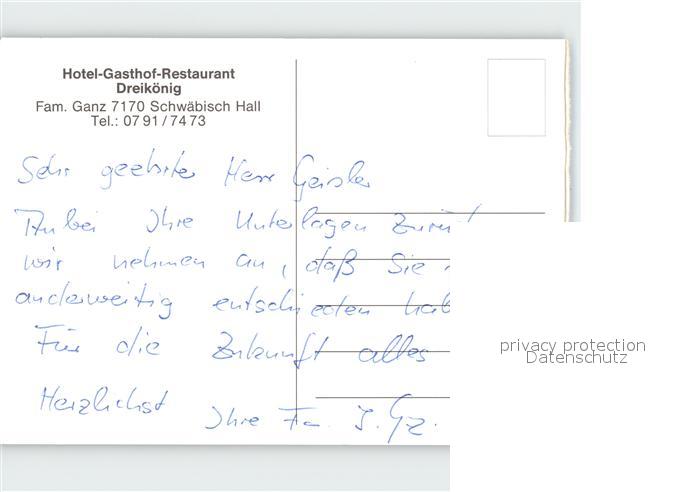 Hotel-Gasthof-Restaurant
Dreikönig
Fam. Ganz 7170 Schwäbisch Hall
Tel.: 07 91 / 74 73
Sehr geehrter Herr Geisler
Anbei Ihre Unterlagen zurü
wir nehmen an, daß Sie
anderweitig entschieden hab
Für die Zukunft alles
Herzlichst Ihre Fa.
privacy protection
Datenschutz